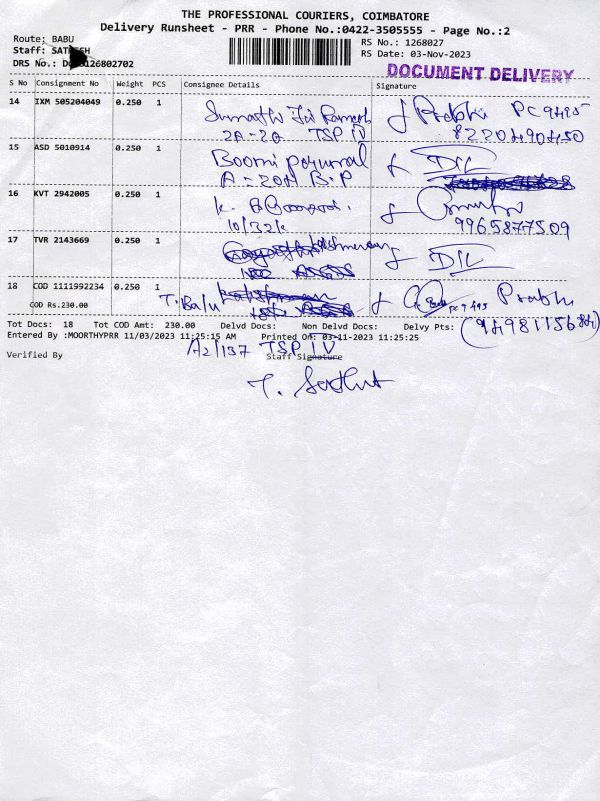 THE PROFESSIONAL COURIERS, COIMBATORE
Delivery Runsheet - PRR - Phone No.:0422-3505555 - Page No.:2
Route: BABU
RS No.: 1268027
Staff: SATHISH
RS Date: 03-Nov-2023
DRS No.: 126802702
DOCUMENT DELIVERY
S No Consignment No Weight PCS Consignee Details Signature
14 IXM 505204049 0.250 1 Sumathi Ramesh Prabhu PC9495
2A=2Q TSP IV 8220490450
15 ASD 5010914 0.250 1 Boomi D/L
A=20H B.P
16 KVT 2942005 0.250 1 K.
10/32k 9965877509
17 TVR 2143669 0.250 1 D/L
18 COD 1111992234 0.250 1 T. Balu Prabhu
COD Rs.230.00
Tot Docs: 18 Tot COD Amt: 230.00 Delvd Docs: Non Delvd Docs: Delvy Pts:
Entered By :MOORTHYPRR 11/03/2023 11:25:15 AM Printed On: 03-11-2023 11:25:25
A2/137 TSP IV
Verified By Staff Signature